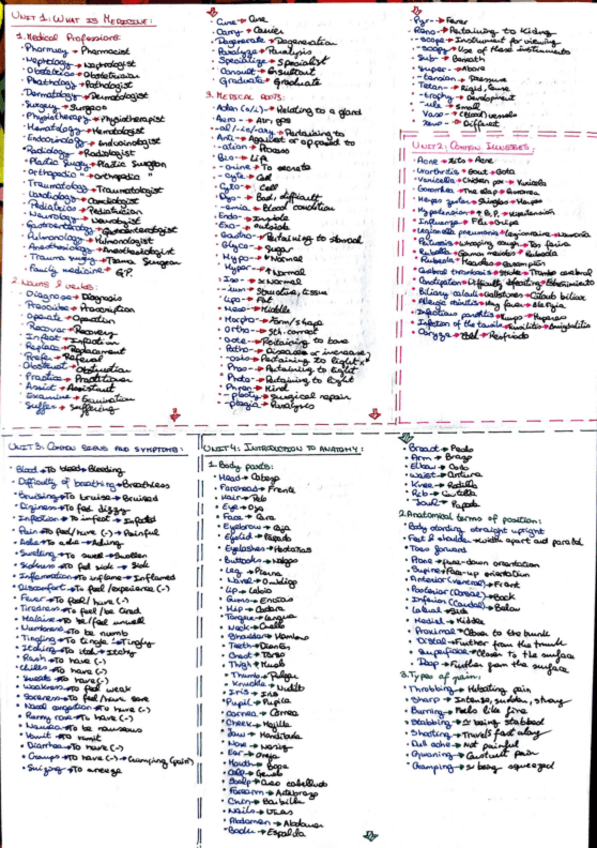 UNIT 1: WHAT IS MEDICINE:
1. Medical Professions:
· Pharmacy → Pharmacist
· Nephrology → Nephrologist
· Obstetrics → Obstetrician
· Pathology → Pathologist
· Dermatology → Dermatologist
· Surgery → Surgeon
· Physiotherapy → Physiotherapist
· Hematology → Hematologist
· Endocrinology → Endocrinologist
· Radiology → Radiologist
· Plastic Surgery → Plastic Surgeon
· Orthopedic " → Orthopedic "
· Traumatology → Traumatologist
· Cardiology → Cardiologist
· Pediatrics → Pediatrician
· Neurology → Neurologist
· Gastroenterology → Gastroenterologist
· Pulmonology → Pulmonologist
· Anesthesiology → Anesthesiologist
· Trauma surgery → Trauma Surgeon
· Family medicine → G.P.
2. Nouns & verbs:
· Diagnose → Diagnosis
· Prescribe → Prescription
· Operate → Operation
· Recover → Recovery
· Infect → Infection
· Replace → Replacement
· Refer → Referral
· Obstruct → Obstruction
· Practice → Practitioner
· Assist → Assistant
· Examine → Examination
· Suffer → Suffering
· Cure → Cure
· Carry → Carrier
· Degenerate → Degeneration
· Paralyze → Paralysis
· Specialize → Specialist
· Consult → Consultant
· Graduate → Graduate
3. MEDICAL ROOTS:
· Aden (o/i) → Relating to a gland
· Aero → Air, gas
· al/-ic/-ary → Pertaining to
· Anti → Against or opposed to
· -ation → Process
· Bio → Life
· -crine → To secrete
· -cyte → Cell
· Cyto → Cell
· Dys → Bad, difficult
· -emia → Blood condition
· Endo → Inside
· Exo → Outside
· Gastro → Pertaining to stomach
· Glyco → Sugar
· Hypo → ↓ Normal
· Hyper → ↑ Normal
· Iso → = Normal
· -ium → Structure, tissue
· Lipo → Fat
· Meso → Middle
· Morpho → Form/shape
· Ortho → Sth. correct
· Patho → Diseases
· Phren → Mind
· -plasty → Surgical repair
· -plegia → Paralysis
· Pyr → Fever
· Reno → Pertaining to Kidney
· -scope → Instrument for viewing
· -scopy → Use of these instruments
· Sub → Beneath
· Super → Above
· -tension → Pressure
· Tetan → Rigid, tense
· -trophy → Development
· -ule → Small
· Vaso → (Blood) vessels
· Xeno → Different
UNIT 2: COMMON ILLNESSES:
· Acne → Zits → Acne
· Urarthritis → Gout → Gota
· Varicella → Chicken pox → Varicela
· Gonorrhea → The clap → Gonorrea
· Herpes zoster → Shingles → Herpes
· Hypertension → ↑ B.P. → Hipertension
· Influenza → Flu → Gripe
· Legionella pneumonia → Legionnaire → Neumonia
· Pertussis → Whooping cough → Tos ferina
· Rubella → German measles → Rubeola
· Rubeola → Measles → Sarampion
· Cerebral thrombosis → Stroke → Trombo cerebral
· Constipation → Difficulty defecating → Estreñimiento
· Biliary calculi → Gallstones → Cálculo biliar
· Allergic rhinitis → Hay fever → Alergia
· Infectious parotitis → Mumps → Paperas
· Infection of the tonsils → Tonsilitis → Amigdalitis
· Coryza → Cold → Resfriado
UNIT 3: COMMON SIGNS AND SYMPTOMS:
· Blood → To bleed → Bleeding
· Difficulty of breathing → Breathless
· Bruising → To bruise → Bruised
· Diziness → To feel dizzy
· Infection → To infect → Infected
· Pain → To feel/have (-) → Painful
· Ache → To ache → Aching
· Swelling → To swell → Swollen
· Sickness → To feel sick → Sick
· Inflammation → To inflame → Inflamed
· Discomfort → To feel/experience (-)
· Fever → To feel/have (-)
· Tiredness → To feel/be tired
· Malaise → To be/feel unwell
· Numbness → To be numb
· Tingling → To tingle → Tingly
· Itching → To itch → Itchy
· Rash → To have (-)
· Chills → To have (-)
· Sweats → To have (-)
· Weakness → To feel weak
· Soreness → To feel/have sore
· Nasal congestion → To have (-)
· Runny nose → To have (-)
· Nausea → To be nauseous
· Vomit → To vomit
· Diarrhea → To have (-)
· Cramps → To have (-) → Cramping (pain)
· Sneezing → To sneeze
UNIT 4: INTRODUCTION TO ANATOMY:
1. Body parts:
· Head → Cabeza
· Forehead → Frente
· Hair → Pelo
· Eye → Ojo
· Face → Cara
· Eyebrow → Ceja
· Eyelid → Párpado
· Eyelashes → Pestañas
· Buttocks → Nalgas
· Leg → Pierna
· Navel → Ombligo
· Lip → Labio
· Gums → Encías
· Hip → Cadera
· Tongue → Lengua
· Neck → Cuello
· Shoulder → Hombro
· Teeth → Dientes
· Chest → Torso
· Thigh → Muslo
· Thumb → Pulgar
· Knuckle → Nudillo
· Iris → Iris
· Pupil → Pupila
· Cornea → Córnea
· Cheek → Mejilla
· Jaw → Mandíbula
· Nose → Nariz
· Ear → Oreja
· Mouth → Boca
· Calf → Gemelo
· Scalp → Cuero cabelludo
· Forearm → Antebrazo
· Chin → Barbilla
· Nails → Uñas
· Abdomen → Abdomen
· Back → Espalda
· Breast → Pecho
· Arm → Brazo
· Elbow → Codo
· Waist → Cintura
· Knee → Rodilla
· Rib → Costilla
2. Anatomical terms of position:
· Body standing straight upright
· Feet & shoulder → width apart and parallel
· Toes forward
· Prone → Face-down orientation
· Supine → Face-up orientation
· Anterior (ventral) → Front
· Posterior (Dorsal) → Back
· Inferior (Caudal) → Below
· Lateral → Side
· Medial → Middle
· Proximal → Closer to the trunk
· Distal → Further from the trunk
· Superficial → Closer to the surface
· Deep → Further from the surface
3. Types of pain:
· Throbbing → Pulsating pain
· Sharp → Intense, sudden, strong
· Burning → Feels like fire
· Stabbing → = being stabbed
· Shooting → Travels fast along
· Dull ache → Not painful
· Gnawing → Constant pain
· Cramping → = being squeezed